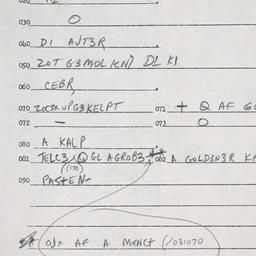 030 O
040 DI AJT3R
050 ZOT G3MOLKN) DI KI
060 CEBR,
070 ZOC3XUPG3KELPT 071 + Q AF
072 — 073 O
080 A KALP
081 TELC3 Q GL AGROB3 082 A GOLD3N3R
(170)
090 PASTEN-
OJX AF A MENCT (/031070